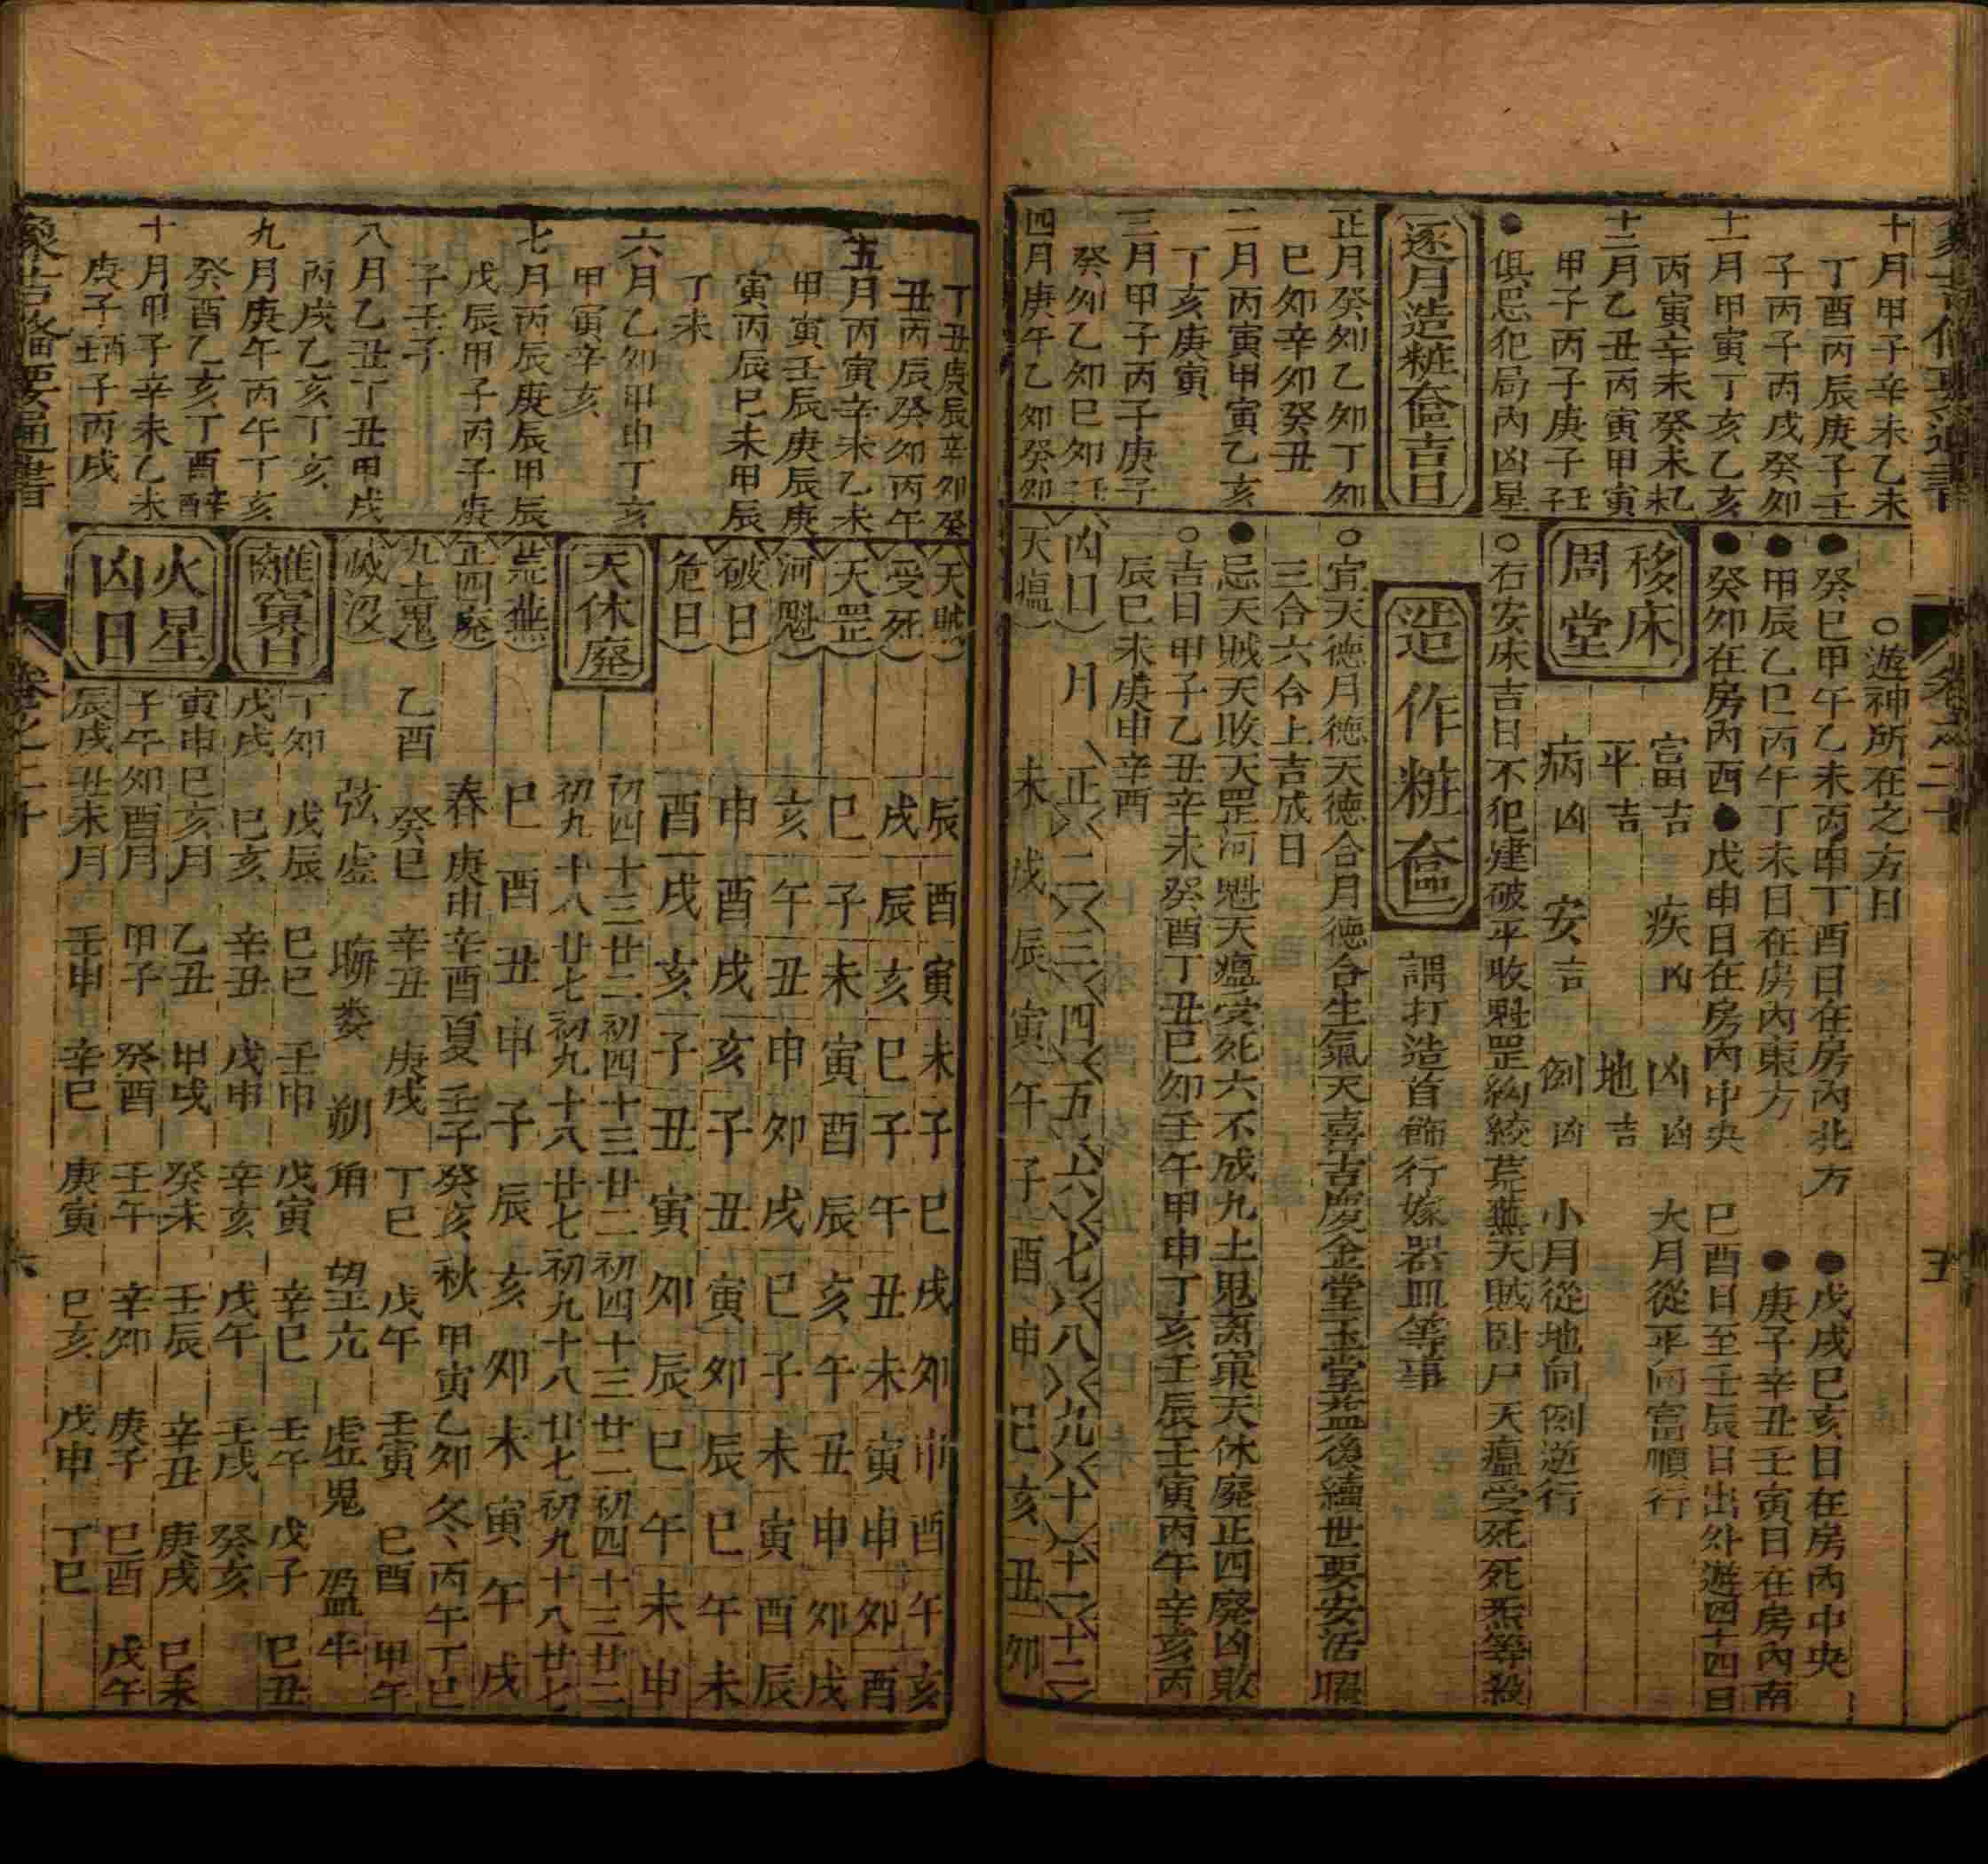 十月甲子辛未乙未
丁酉丙辰庚子壬
子丙子丙戌癸卯
十一月甲寅丁亥乙亥
丙寅辛未癸未
十二月乙丑丙寅甲寅
甲子丙子庚子壬子
●俱忌犯局內凶星
逐月造粧奩吉日
正月癸卯乙卯丁卯
巳卯辛卯癸丑
二月丙寅甲寅乙亥
丁亥庚寅
三月甲子丙子庚子
癸卯乙卯巳卯壬
四月庚午乙卯癸卯
○遊神所在之方日
●癸巳甲午乙未丙申丁酉日在房內北方 ●戊戌巳亥日在房內中央
●甲辰乙巳丙午丁未日在房內東方 ●庚子辛丑壬寅日在房內南
●癸卯在房內西●戊申日在房內中央 巳酉日至壬辰日出外遊四十四日
移床周堂
富吉 疾凶 凶凶 大月從平向富順行
平吉 地吉
病凶 安吉 倒凶 小月從地向倒逆行
○右安床吉日不犯建破平收魁罡絞荒蕪天賊卧尸天瘟受死死炁等殺
造作粧奩
謂打造首飾行嫁器皿等事
○宜天德月德天德合月德合生氣天喜吉慶金堂玉堂益後續世要安活曜
三合六合上吉成日
●忌天賊天敗天罡河魁天瘟受死六不成九土鬼离窠天休廢正四廢凶敗
○吉日甲子乙丑辛未癸酉丁丑巳卯壬午甲申丁亥壬辰壬寅丙午辛亥丙
辰巳未庚申辛酉
凶日 月 正 二 三 四 五 六 七 八 九 十 十一 十二
天瘟 未 戌 辰 寅 午 子 酉 申 巳 亥 丑 卯
丁丑庚辰辛卯癸
丑丙辰癸卯丙午
五月丙寅辛未乙未
甲寅壬辰庚辰庚
寅丙辰巳未甲辰
丁未
六月乙卯甲申丁亥
甲寅辛亥
七月丙辰庚辰甲辰
戊辰甲子丙子庚
子壬子
八月乙丑丁丑甲戌
丙戌乙亥丁亥
九月庚午丙午丁亥
癸酉乙亥丁酉辛酉
十月甲子辛未乙未
庚子壬子丙戌
天賊 辰 酉 寅 未 子 巳 戌 卯 申 酉 午 亥
受死 戌 辰 亥 巳 子 午 丑 未 寅 申 卯 酉
天罡 巳 子 未 寅 酉 辰 亥 午 丑 申 卯 戌
河魁 亥 午 丑 申 卯 戌 巳 子 未 寅 酉 辰
破日 申 酉 戌 亥 子 丑 寅 卯 辰 巳 午 未
危日 酉 戌 亥 子 丑 寅 卯 辰 巳 午 未 申
天休廢 初四十三廿二初四十三廿二初四十三廿二初四十三廿二
初九十八廿七初九十八廿七初九十八廿七初九十八廿七
荒蕪 巳 酉 丑 申 子 辰 亥 卯 未 寅 午 戌
正四廢 春庚申辛酉夏壬子癸亥秋甲寅乙卯冬丙午丁巳
九土鬼 乙酉 癸巳 辛丑 庚戌 丁巳 戊午 壬寅 巳酉 甲午
滅沒 弦虛 晦婁 朔角 望亢 虛鬼 盈牛
離窠日 丁卯 戊辰 巳巳 壬申 戊寅 辛巳 壬午 戊子 巳丑
戊戌 巳亥 辛丑 戊申 辛亥 戊午 壬戌 癸亥
火星凶日 寅申巳亥月 乙丑 甲戌 癸未 壬辰 辛丑 庚戌 巳未
子午卯酉月 甲子 癸酉 壬午 辛卯 庚子 巳酉 戊午
辰戌丑未月 壬申 辛巳 庚寅 巳亥 戊申 丁巳
象吉備要通書
卷之二十
六